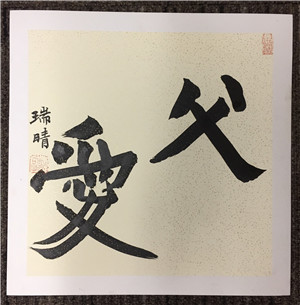 父愛
瑞晴